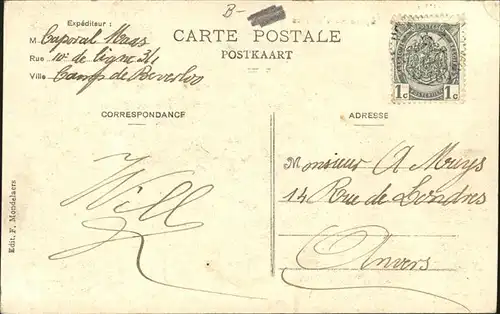 B-
Expéditeur :
M Caporal Maas
Rue 10e de ligne 3/1
Ville Camp de Beverloo
CARTE POSTALE
POSTKAART
1c 1c
CORRESPONDANCE
ADRESSE
Will
Monsieur A Muys
14 Rue de Londres
Anvers
Edit. F. Mondelaers